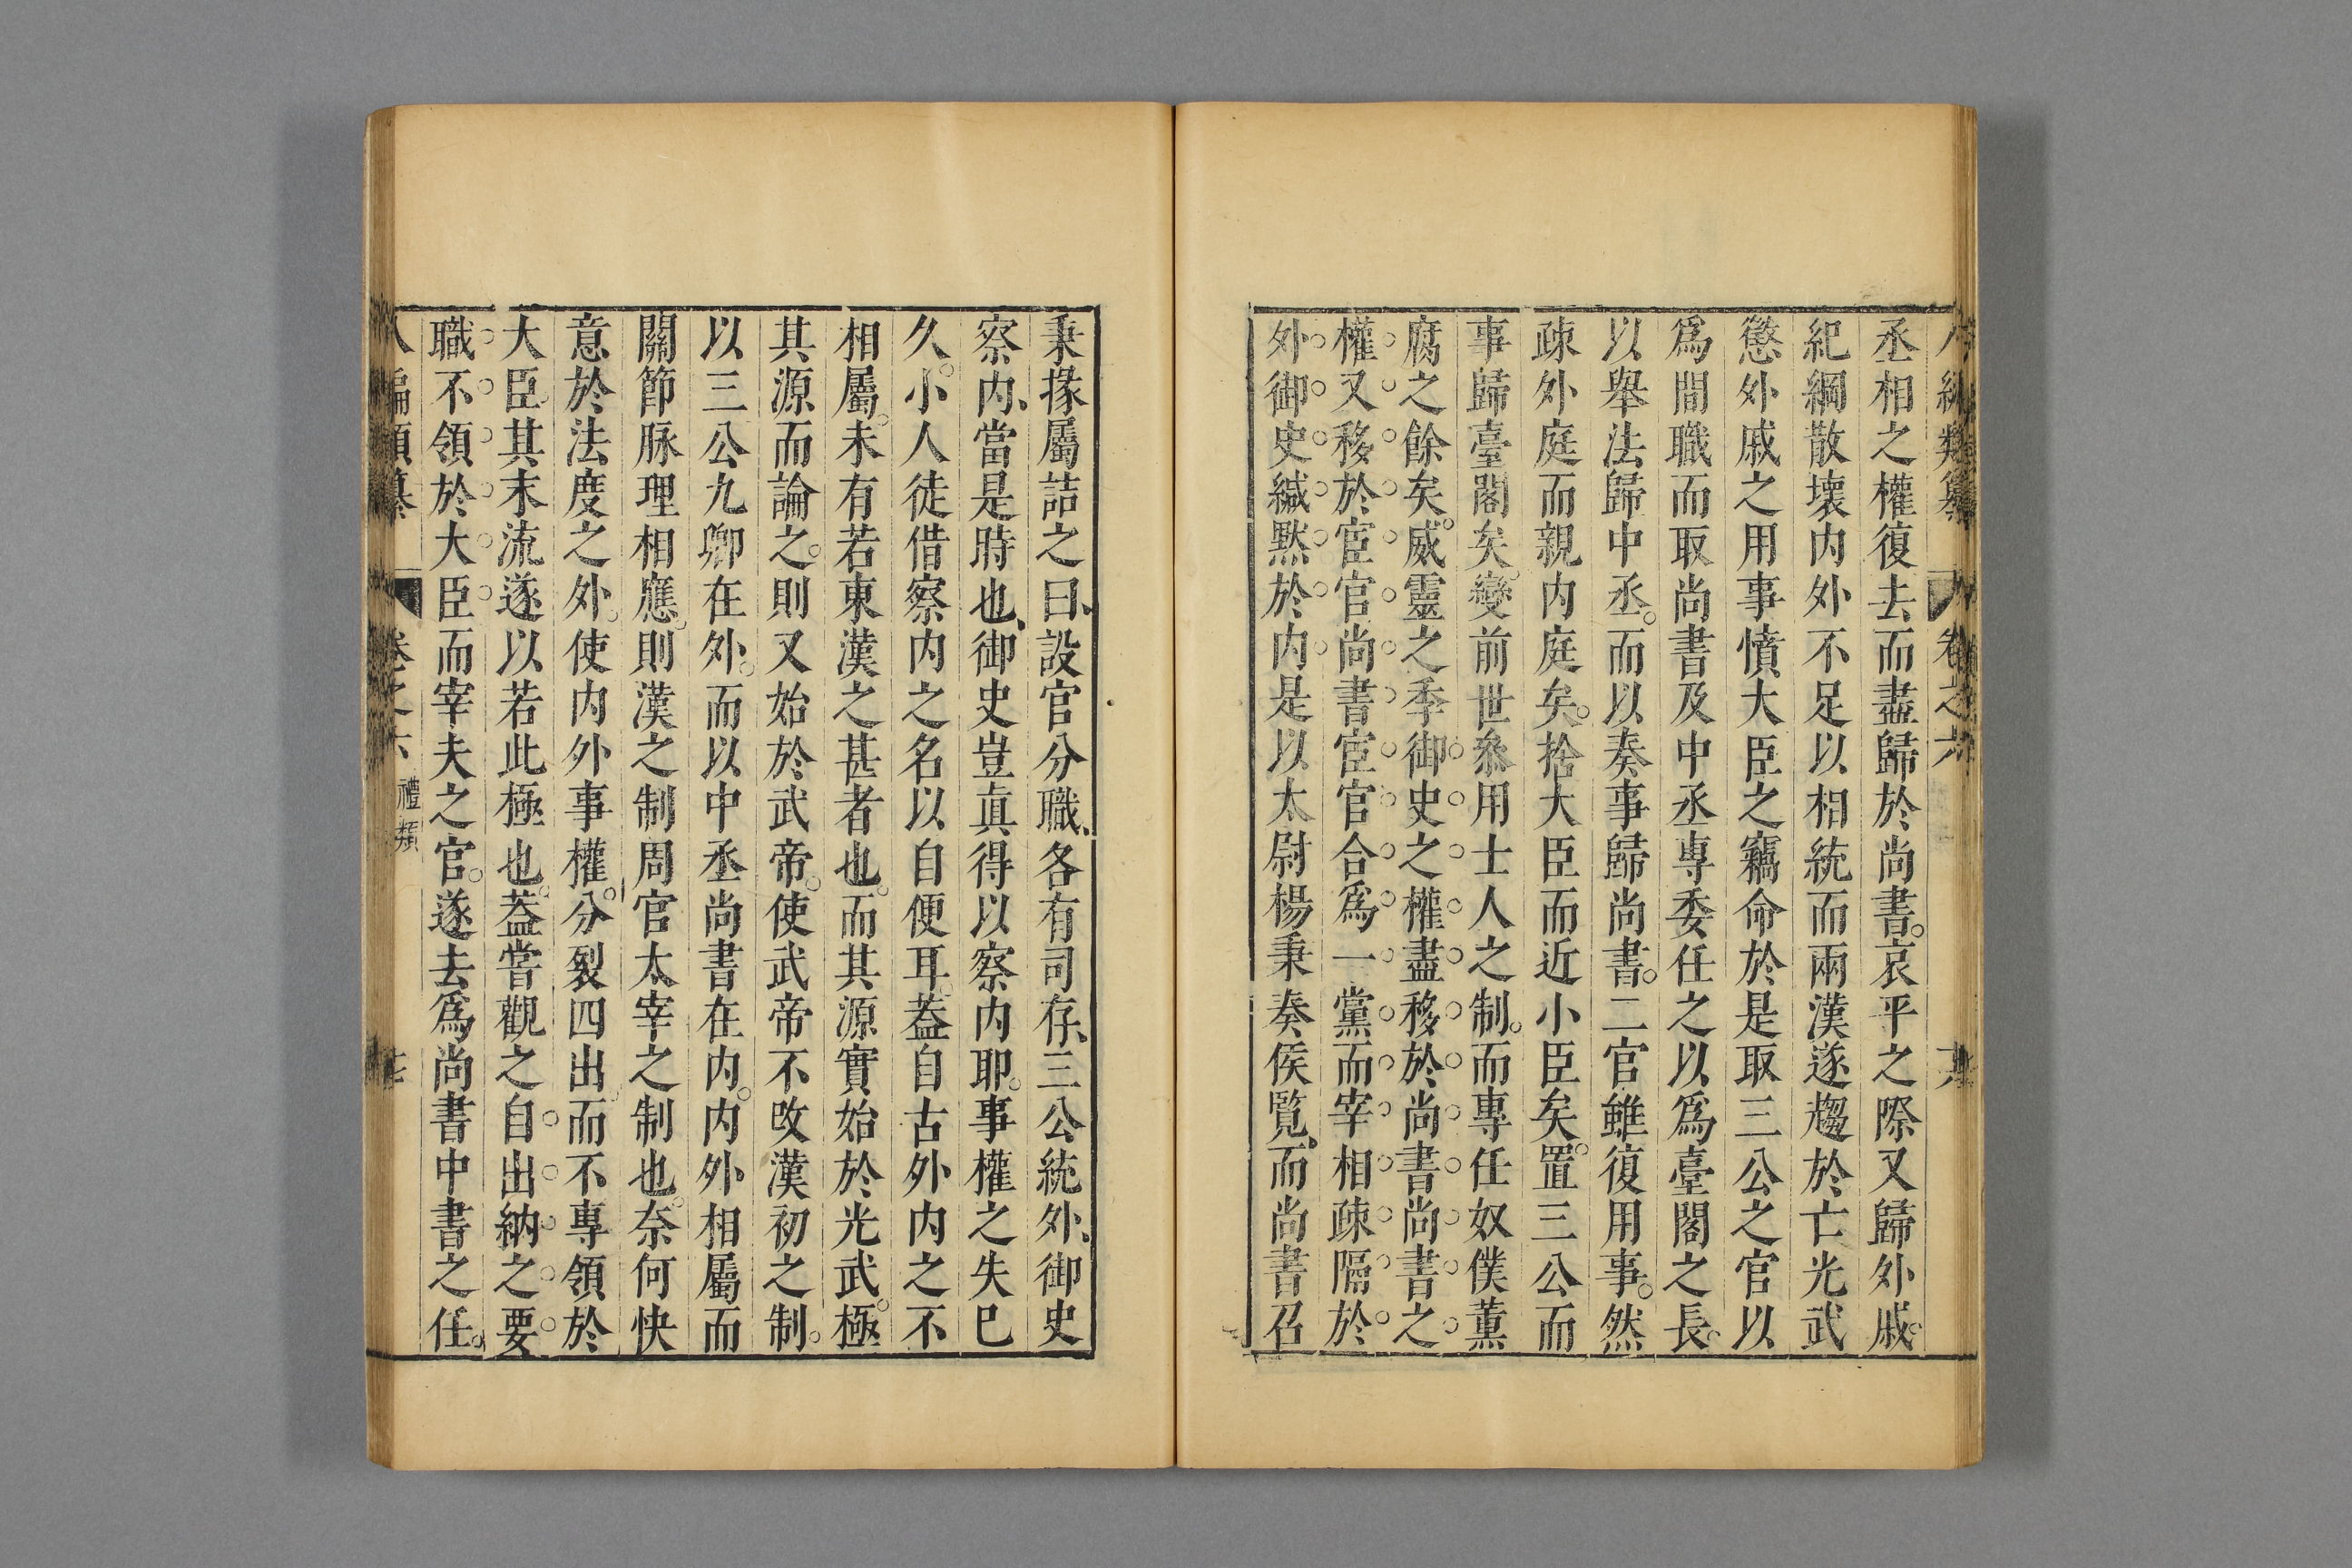 八編類纂 卷之六 十六
丞相之權復去而盡歸於尚書。哀平之際又歸外戚。
紀綱散壞内外不足以相統而兩漢遂趨於亡光武
懲外戚之用事憤大臣之竊命於是取三公之官以
爲閒職而取尚書及中丞專委任之以爲臺閣之長。
以舉法歸中丞。而以奏事歸尚書。二官雖復用事。然
疎外庭而親内庭矣。捨大臣而近小臣矣。置三公而
事歸臺閣矣。變前世叅用士人之制。而專任奴僕薫
腐之餘矣。威靈之季御史之權盡移於尚書尚書之
權又移於宦官尚書宦官合爲一黨而宰相疎隔於
外御史緘黙於内是以太尉楊秉奏侯覽。而尚書召
秉掾屬詰之曰、設官分職、各有司存、三公統外、御史
察内、當是時也、御史豈眞得以察内耶。事權之失已
久。小人徒借察内之名以自便耳。葢自古外内之不
相屬。未有若東漢之甚者也。而其源實始於光武。極
其源而論之。則又始於武帝。使武帝不改漢初之制。
以三公九卿在外。而以中丞尚書在内。内外相屬而
關節脉理相應。則漢之制周官太宰之制也。奈何快
意於法度之外。使内外事權。分裂四出而不專領於
大臣。其末流遂以若此極也。葢嘗觀之自出納之要
職不領於大臣而宰夫之官。遂去爲尚書中書之任。
八編類纂 卷之六 禮類 十七